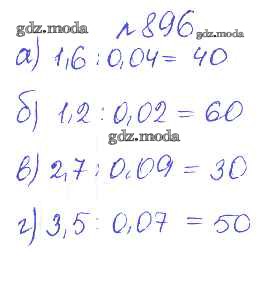 gdz.moda №896 gdz.moda
а) 1,6 : 0,04 = 40
б) 1,2 : 0,02 = 60
gdz.moda
в) 2,7 : 0,09 = 30
г) 3,5 : 0,07 = 50